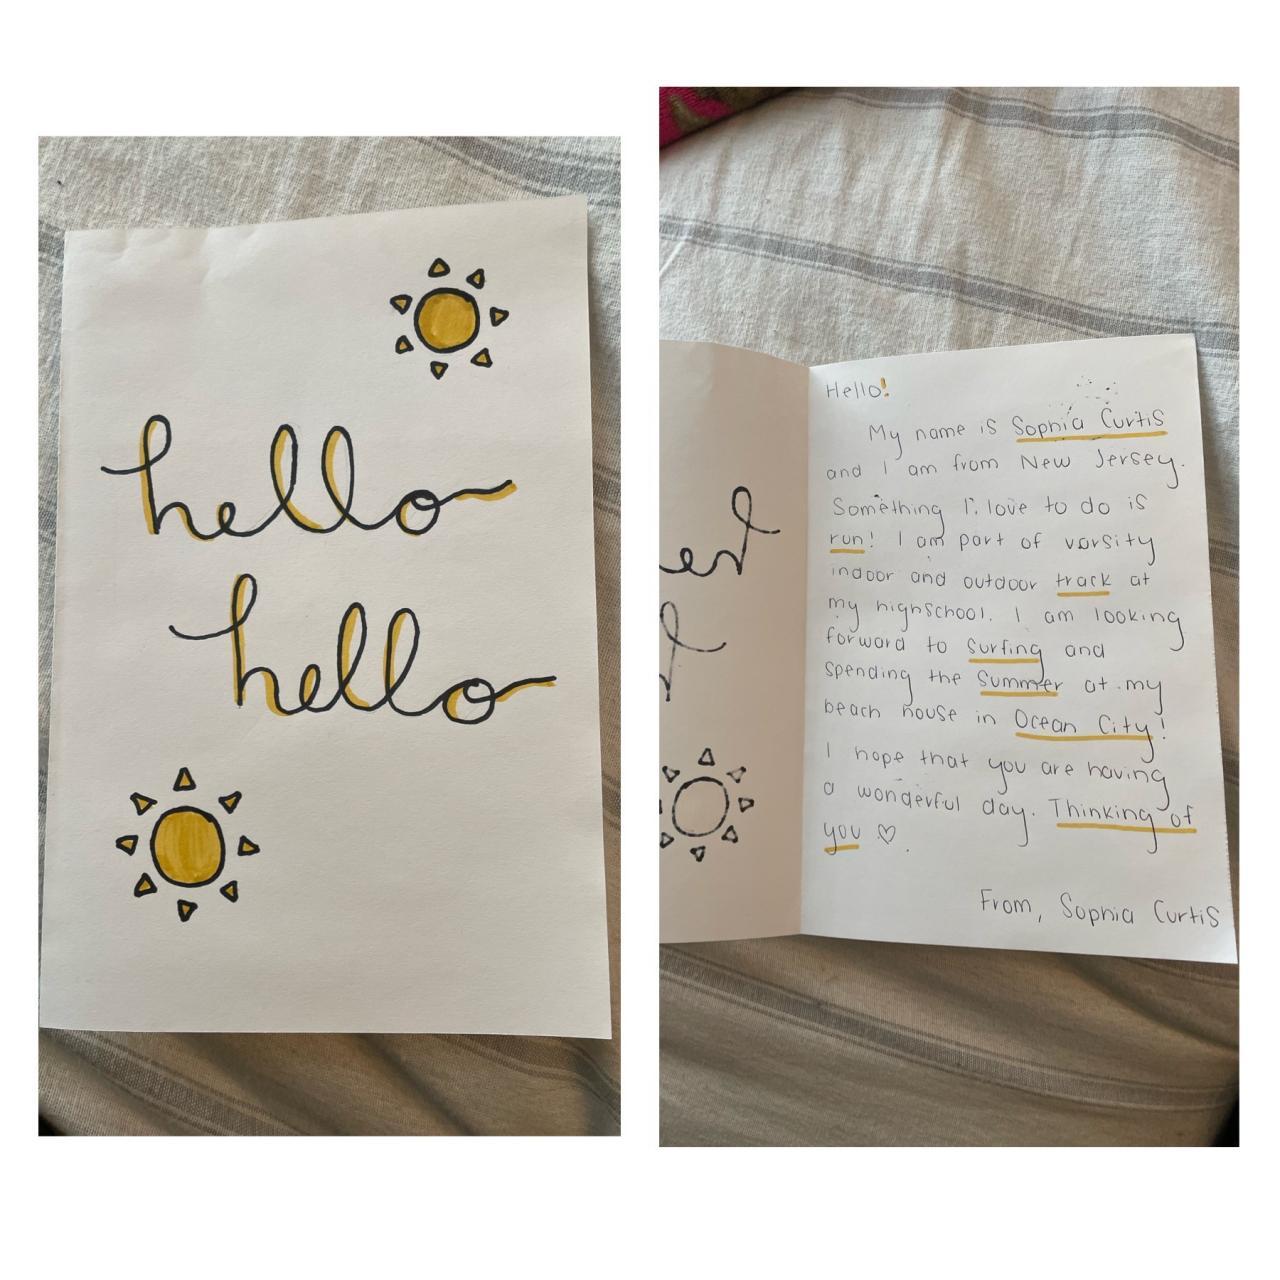 hello
hello
Hello!
My name is Sophia Curtis
and I am from New Jersey.
Something I love to do is
run! I am part of varsity
indoor and outdoor track at
my highschool. I am looking
forward to Surfing and
spending the Summer at my
beach house in Ocean City!
I hope that you are having
a wonderful day. Thinking of
you ♡.
From, Sophia Curtis